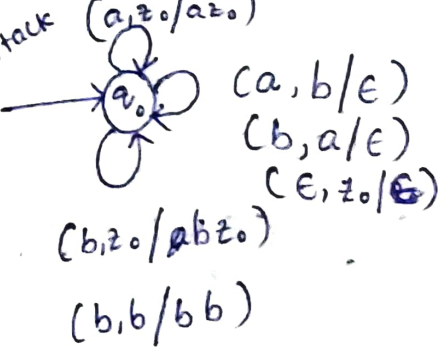 tack (a, z₀/az₀)
q₀
(a, b/ϵ)
(b, a/ϵ)
(ϵ, z₀/ϵ)
(b, z₀/bz₀)
(b, b/bb)